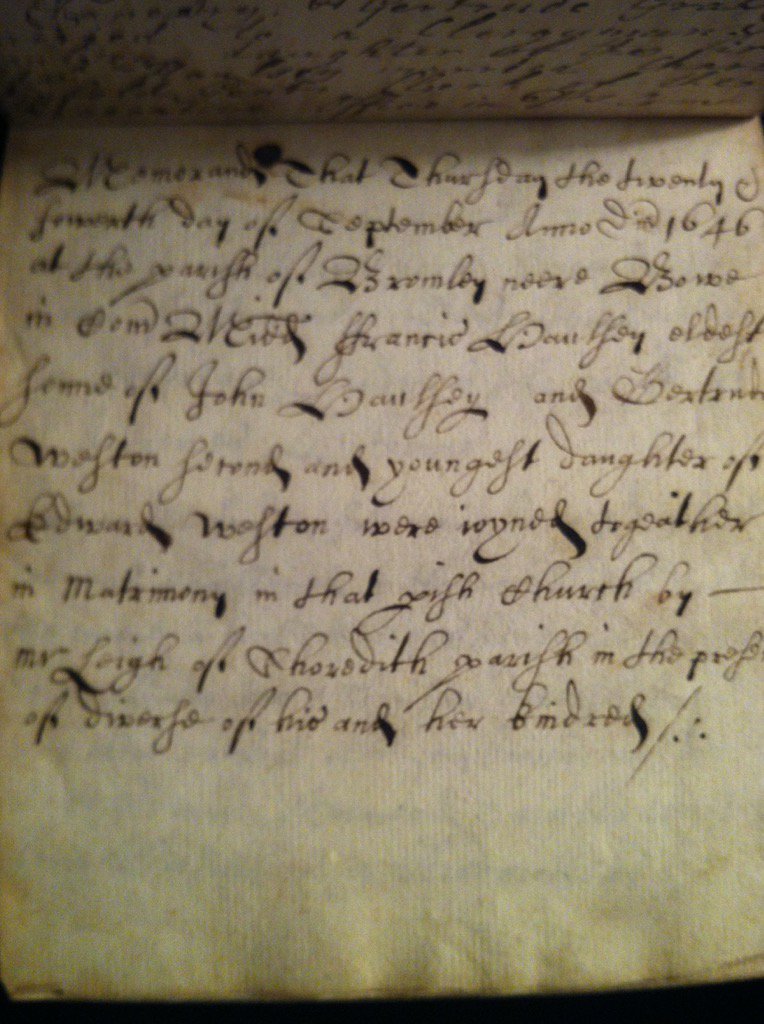 a Clergyman
Memorand That Thursday the twenty &
fowerth day of September Anno Dni 1646
at the parish of Bromley neere Bowe
in Com Midd ffrancis Haulsey eldest
sonne of John Haulsey and Gertrud
Weston second and youngest daughter of
Edward Weston were ioyned togeather
in Matrimony in that pish Church by —
mr Leigh of Shoredith parish in the prese
of diverse of his and her kindred /.: